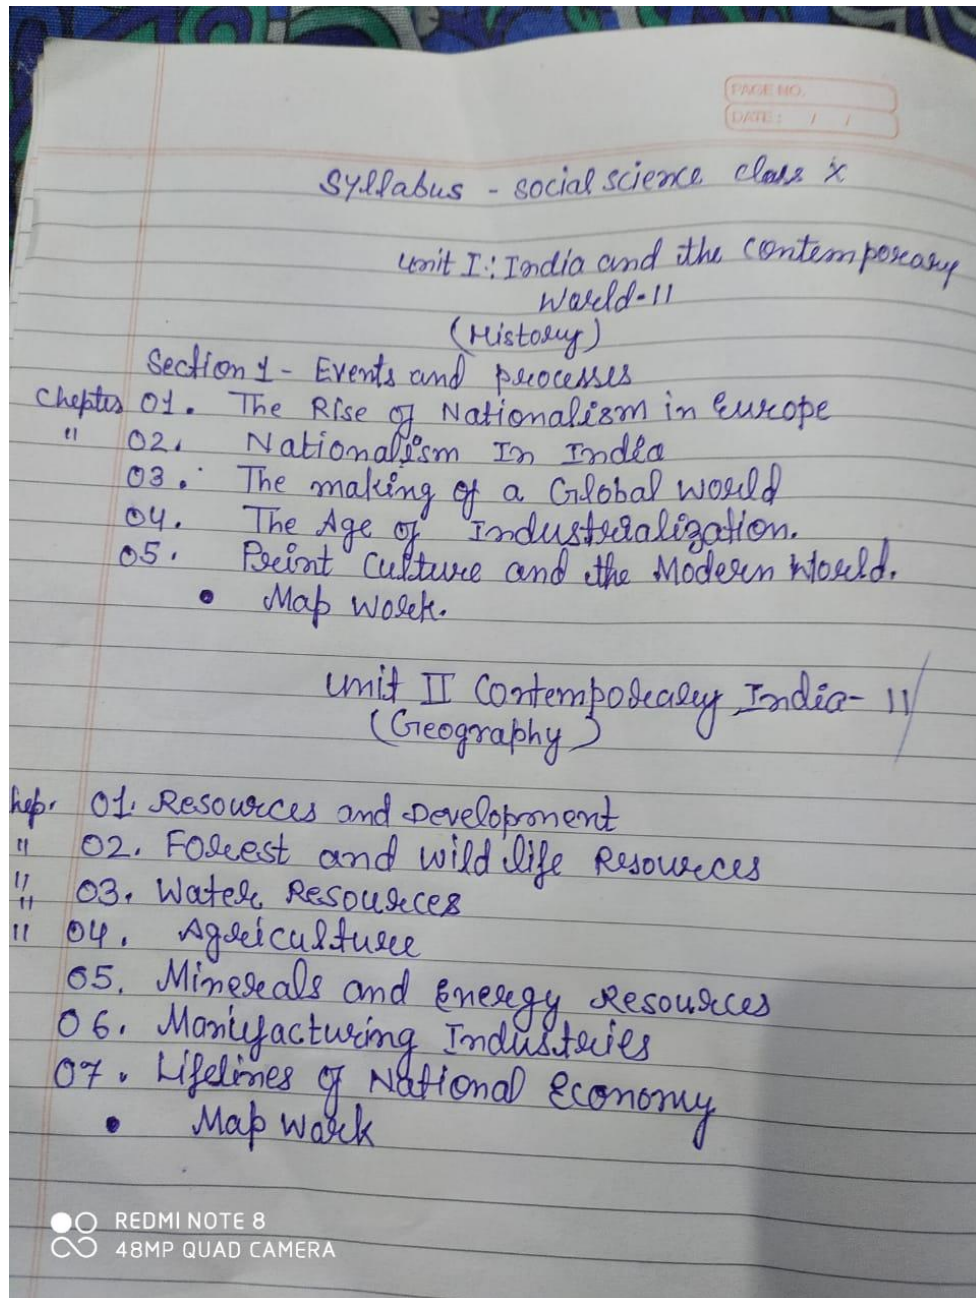 PAGE NO.
DATE: / /
Syllabus - social science class X
Unit I: India and the contemporary
World-II
(History)
Section 1 - Events and processes
Chepter 01. The Rise of Nationalism in Europe
" 02. Nationalism In India
03. The making of a Global world
04. The Age of Industrialization.
05. Print Culture and the Modern World.
• Map Work.
Unit II Contemporary India- II
(Geography)
hep. 01. Resources and Development
" 02. Forest and wild life Resources
" 03. Water Resources
" 04. Agriculture
05. Minerals and Energy Resources
06. Manufacturing Industries
07. Lifelines of National Economy
• Map Work
REDMI NOTE 8
48MP QUAD CAMERA